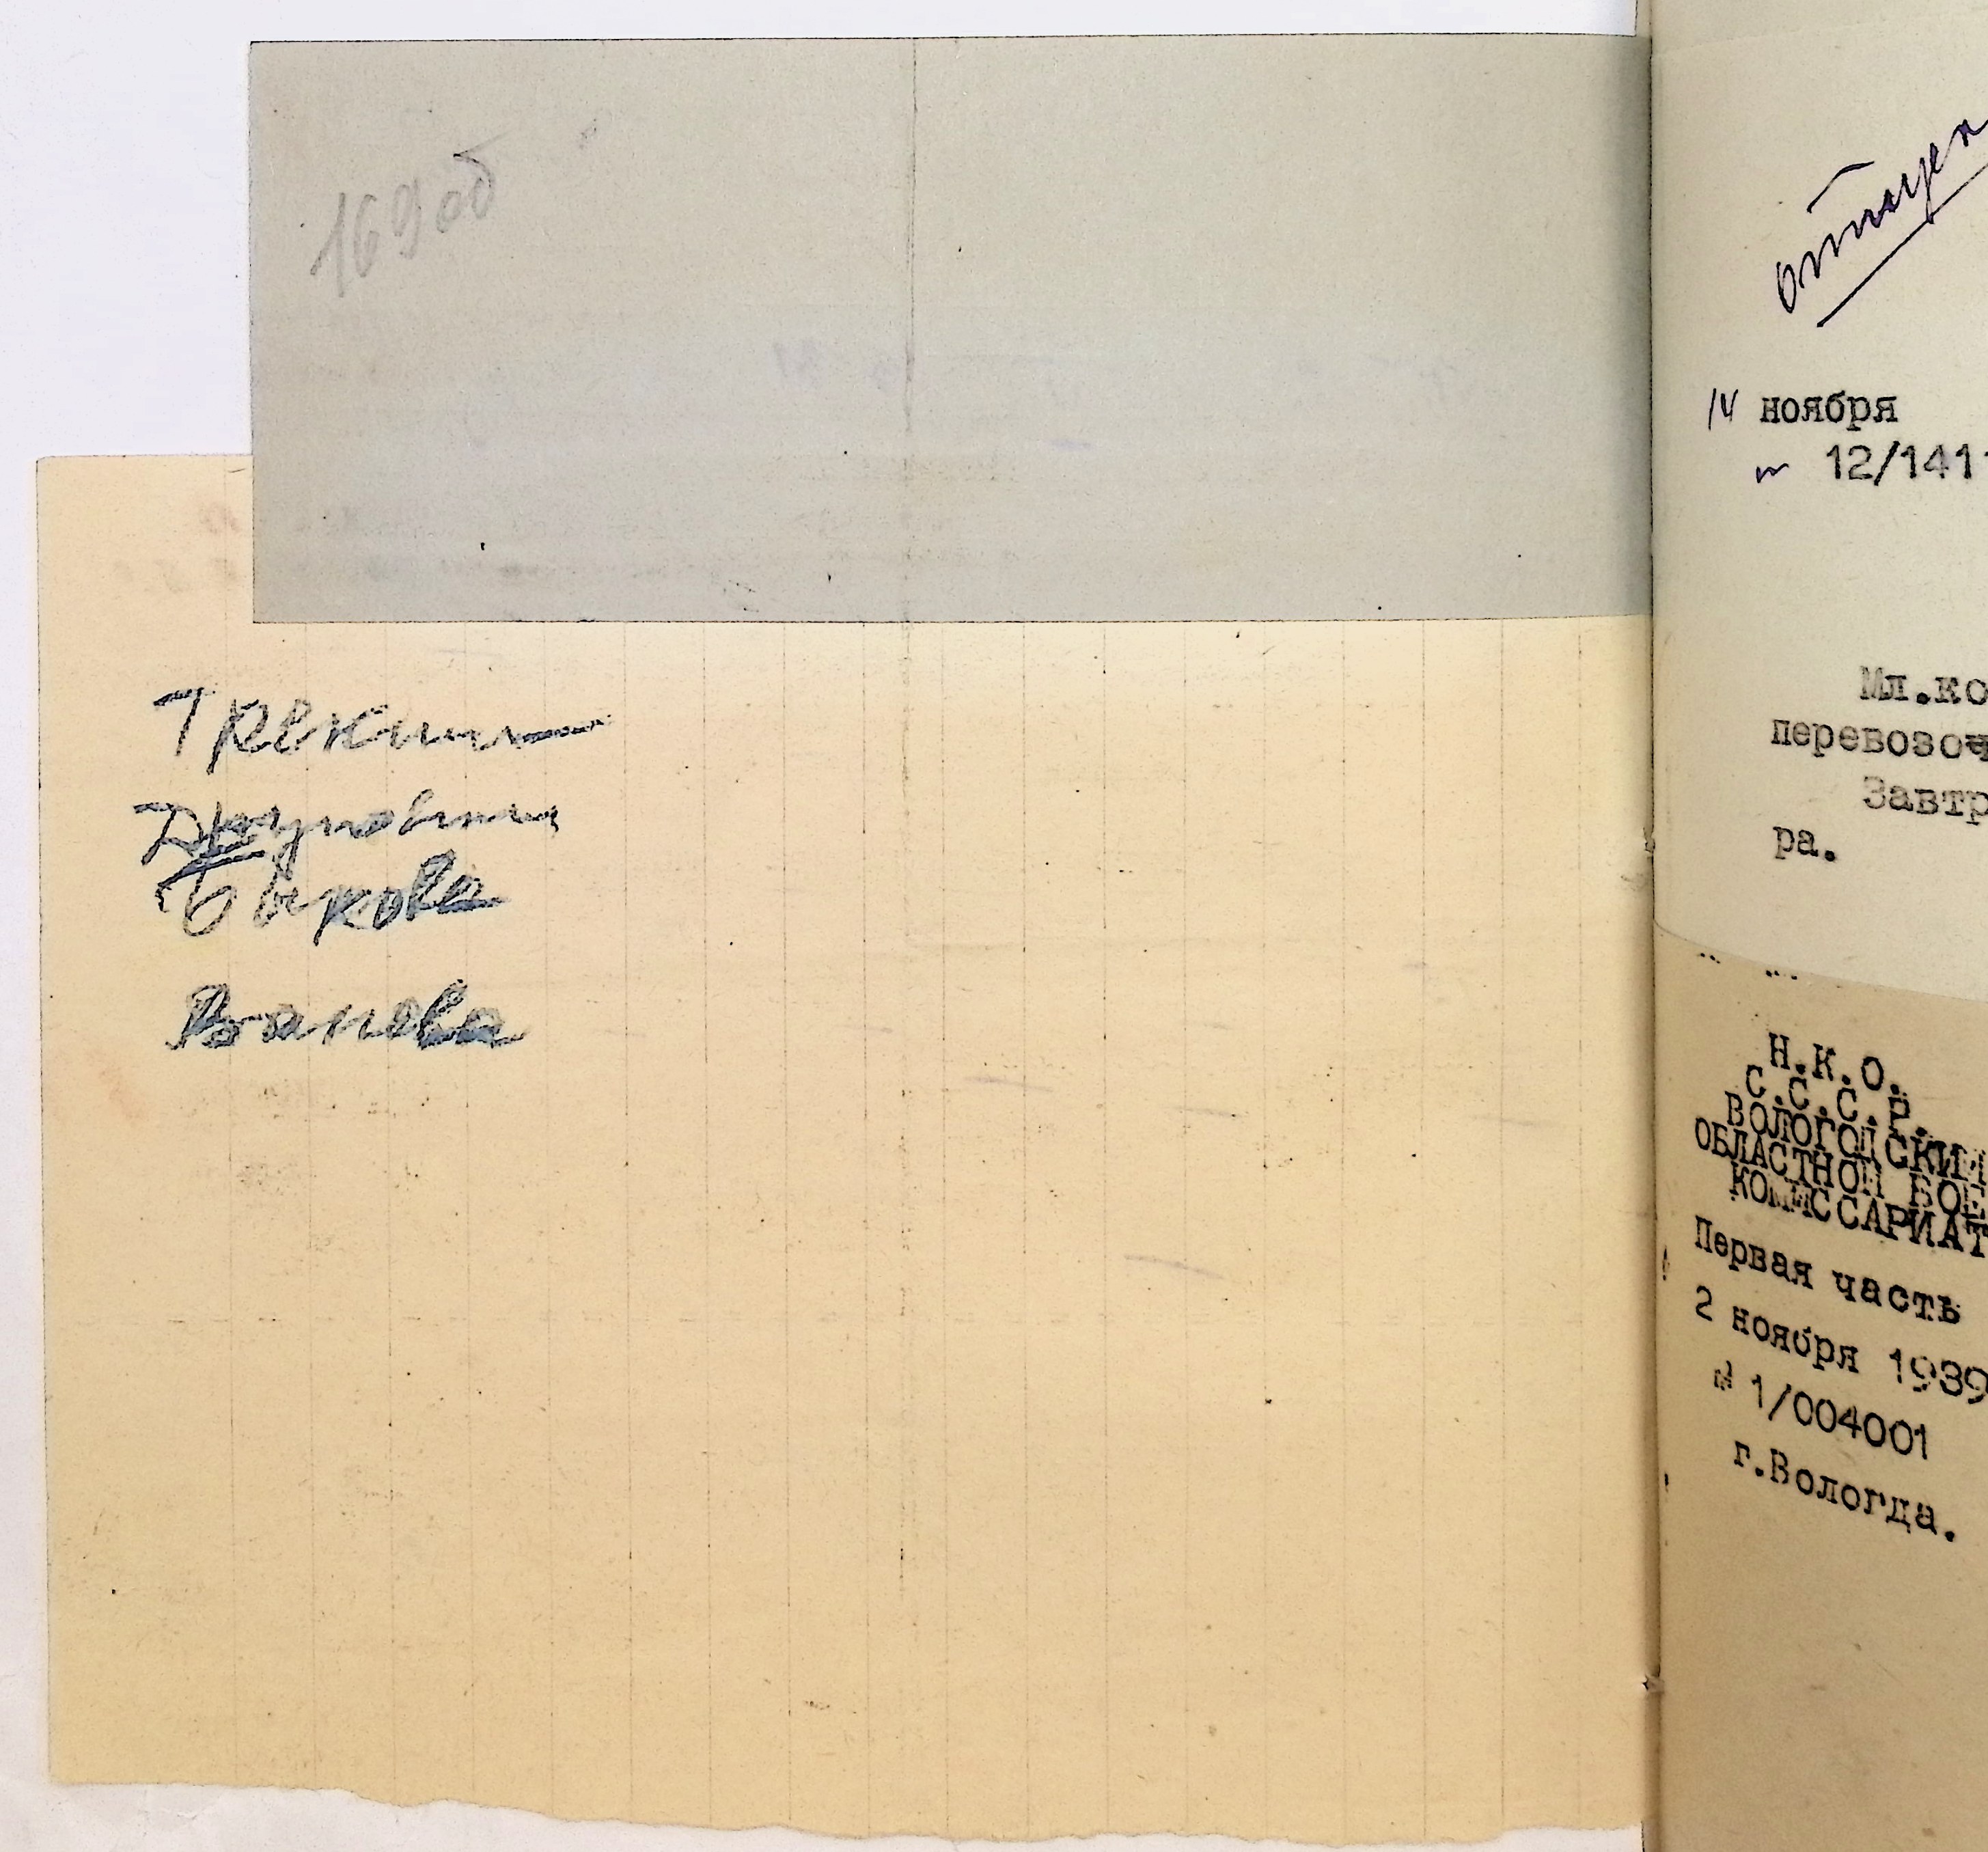 169об
Тревкин
Быкова
Ванова
отпуск
14 ноября
12/141
Мл.ко
перевозоч
Завтр
ра.
Н.К.О.
С.С.С.Р.
ВОЛОГОДСКИЙ
ОБЛАСТНОЙ ВОЕ
КОМИССАРИАТ
Первая часть
2 ноября 1939
№ 1/004001
г.Вологда.